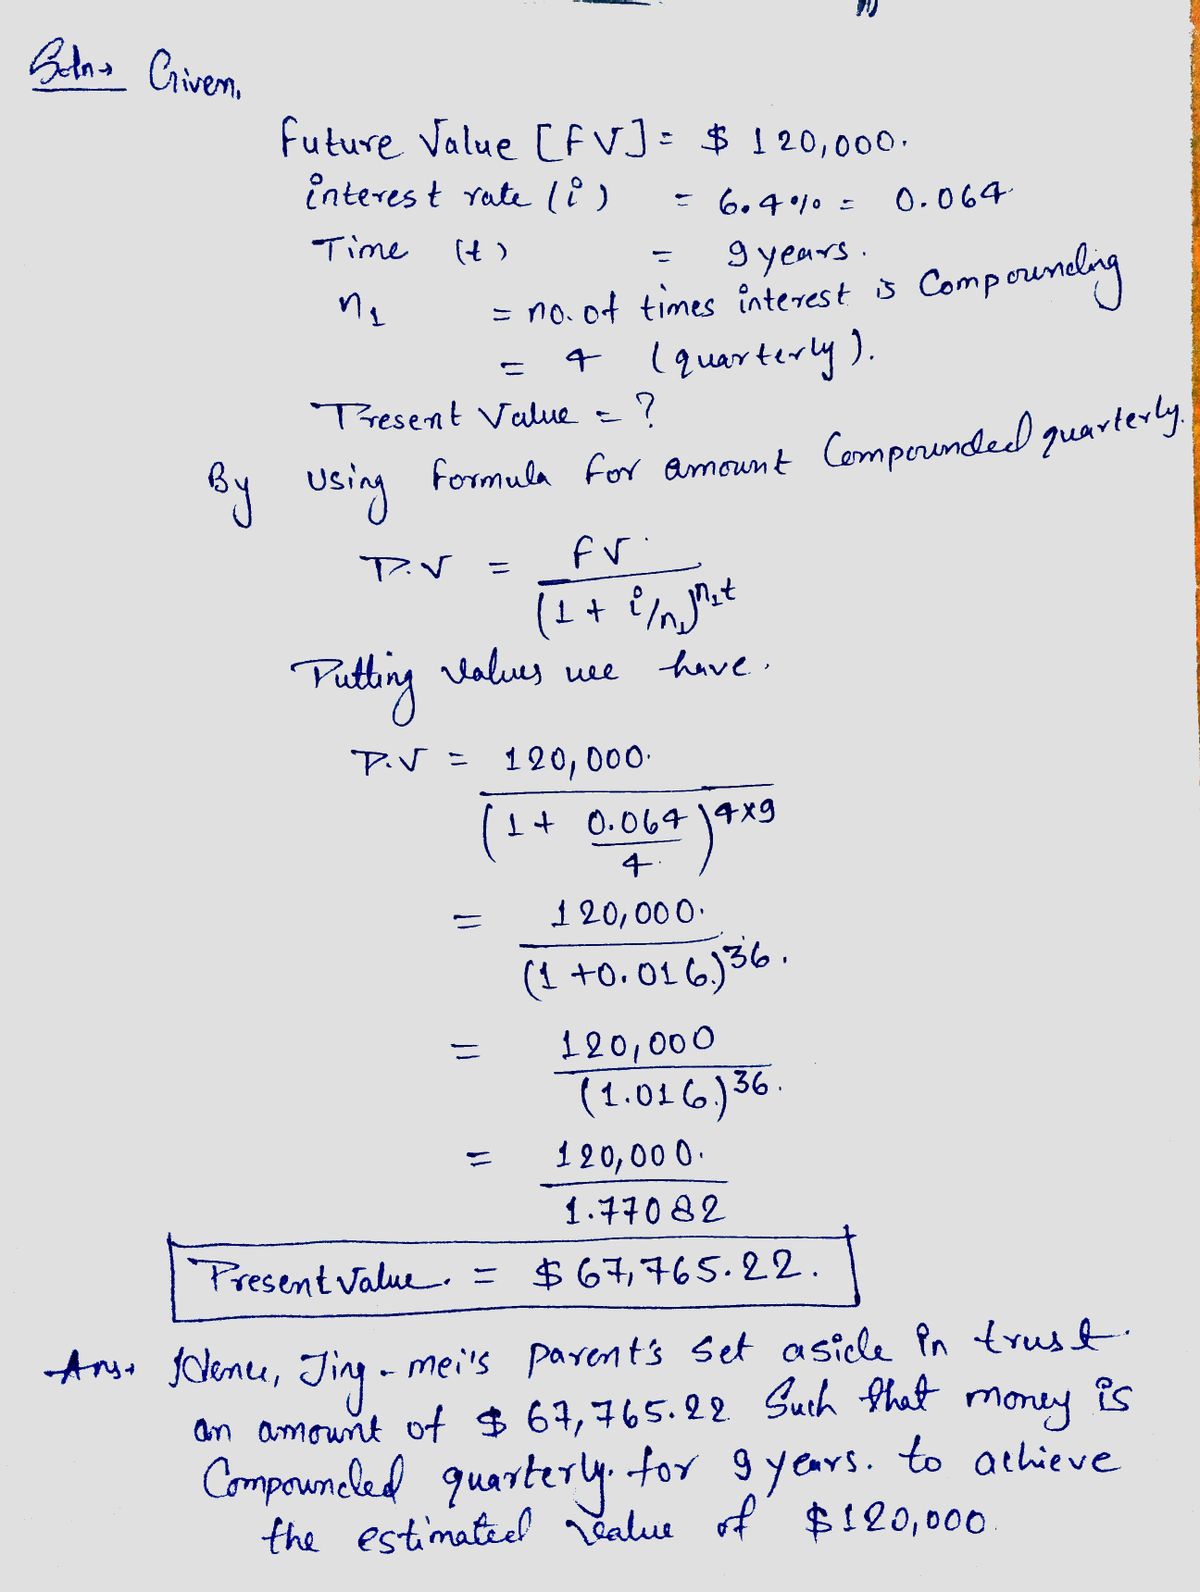 Soln→ Given,
Future Value [FV] = $ 120,000.
interest rate (i) = 6.4% = 0.064
Time (t) = 9 years.
n₁ = no. of times interest is Compounding
= 4 (quarterly).
Present Value = ?
By using formula for amount Compounded quarterly.
P.V = FV / (1 + i/n₁)^n₁t
Putting values we have.
P.V = 120,000. / (1 + 0.064/4)^4×9
= 120,000. / (1 + 0.016)^36.
= 120,000 / (1.016)^36.
= 120,000. / 1.77082
Present Value. = $ 67,765.22.
Ans→ Hence, Jing-mei's parent's set aside in trust.
an amount of $ 67,765.22 Such that money is
Compounded quarterly. for 9 years. to achieve
the estimated value of $120,000.